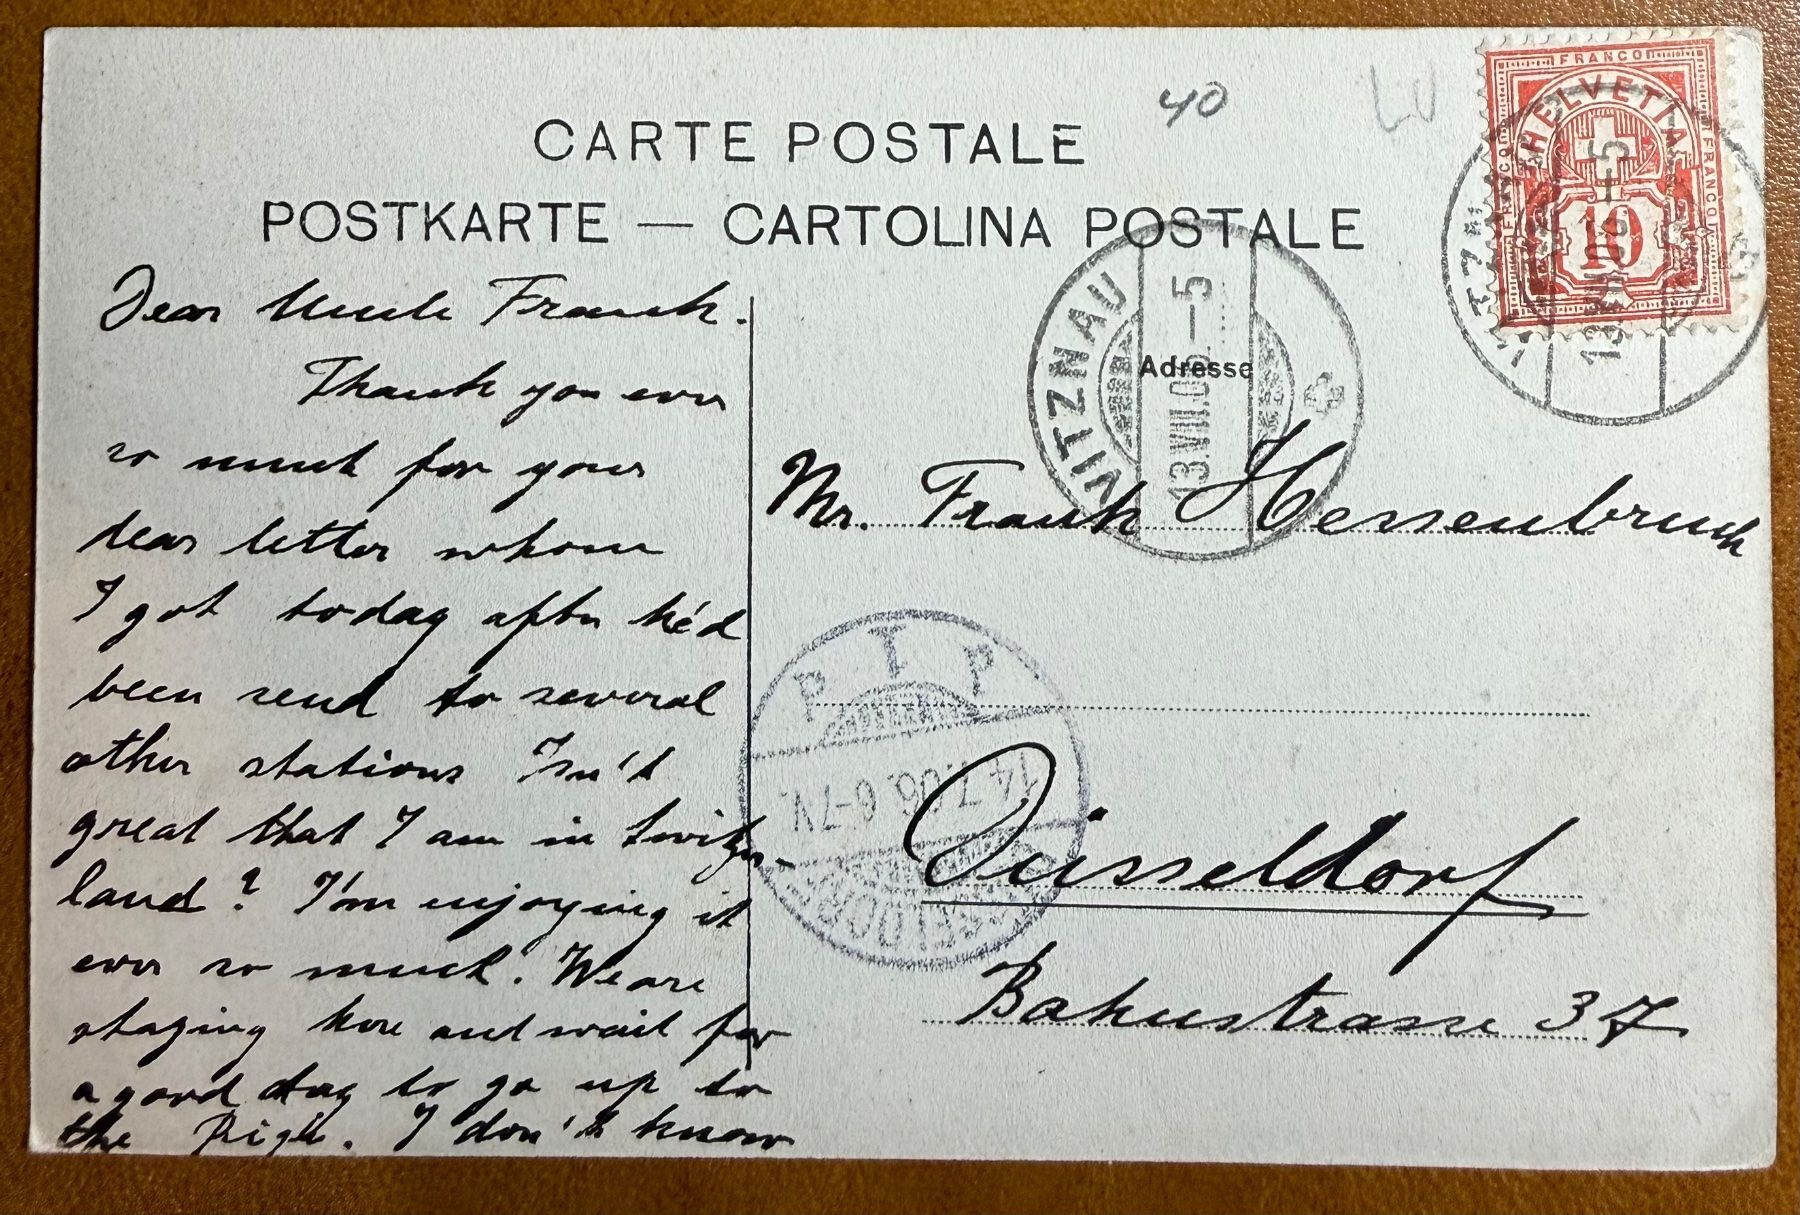 40
CARTE POSTALE
POSTKARTE — CARTOLINA POSTALE
FRANCO
HELVETIA
FRANCO
FRANCO
10
13.VII.06.-5
VITZNAU
13.VII.06.-5
Adresse
Dear Uncle Frank.
Thank you ever
so much for your
dear letter whom
I got today after he'd
been send to several
other stations Isn't
great that I am in Switzer-
land? I'm enjoying it
ever so much. We are
staying here and wait for
a good day to go up to
the Rigi. I don't know
Mr. Frank Hessenbruch
Düsseldorf
Bahnstrasse 37
14.7.06. 6-7V.
DÜSSELDORF